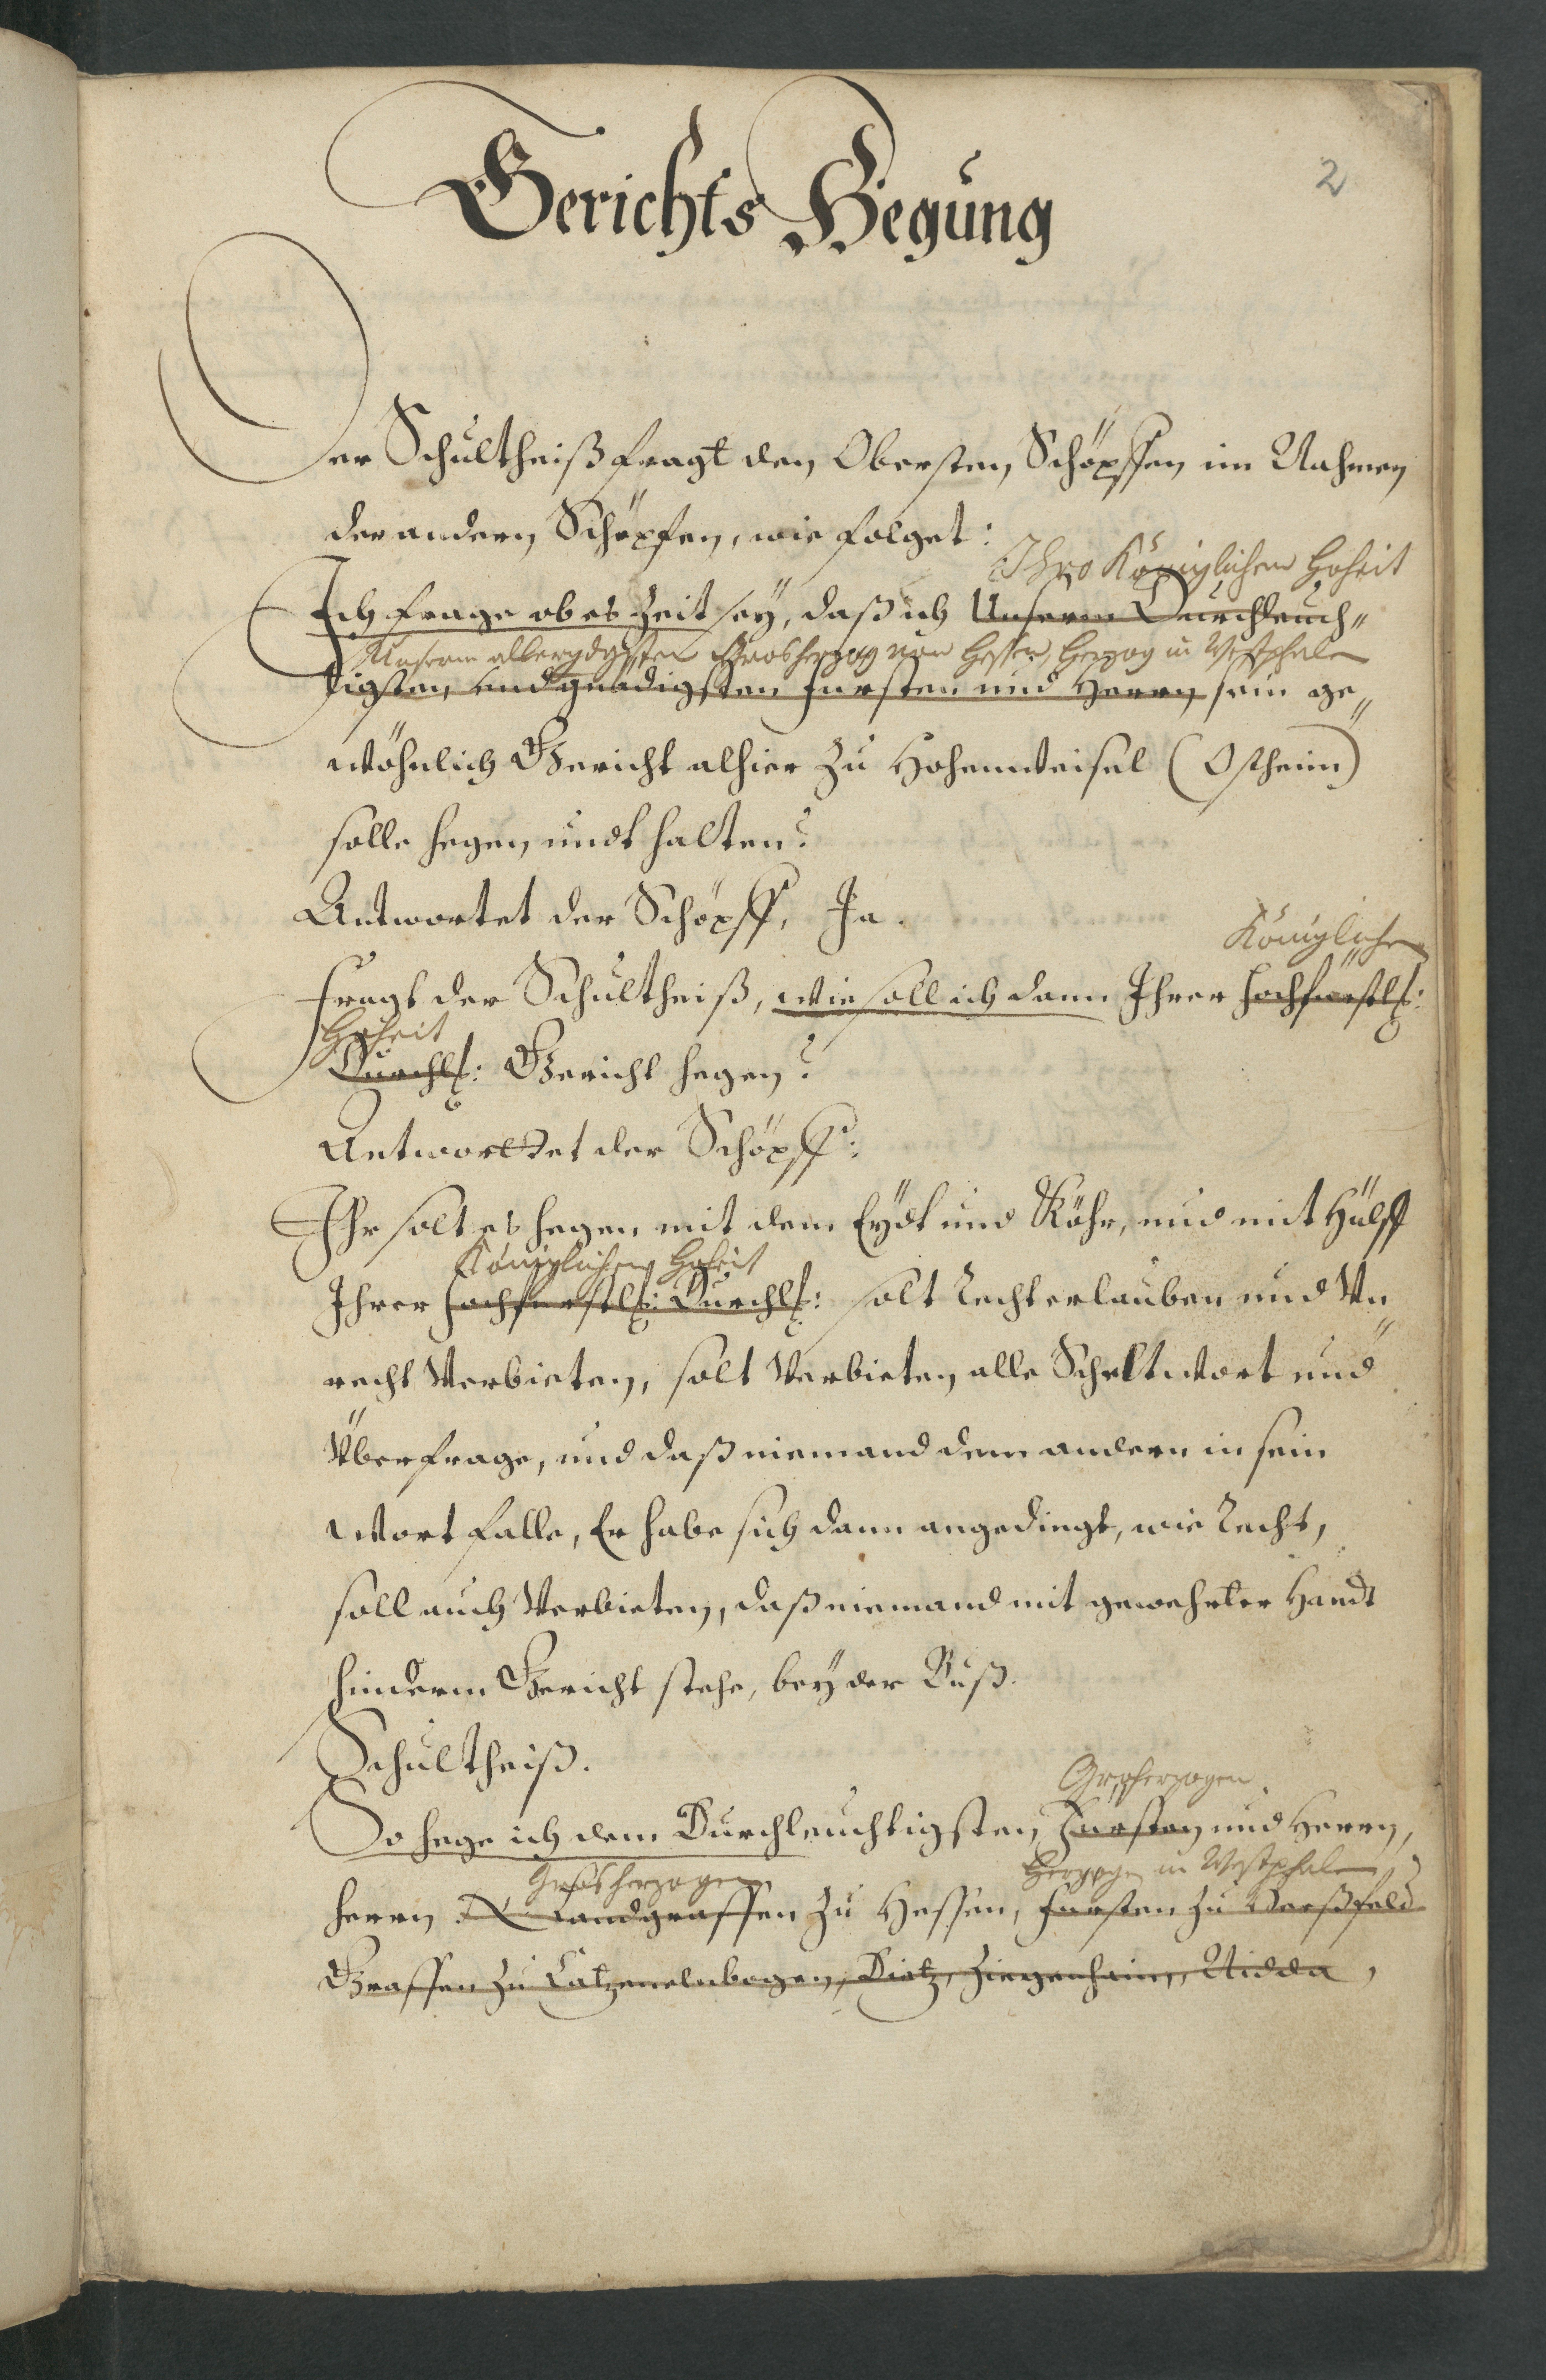 2
Gerichts Hegung
Der Schultheiß fragt den Obersten Schöpffen im Nahmen
der andern Schöpfen, wie folget:
Ihro Königlichen Hoheit
Ich frage ob es Zeit sey, daß ich Unserm Durchleuch-
Unserm allergdgsten Grosherzog von Hessen, Herzog in Westphalen
tigsten, und gnädigsten Fürsten und Herrn, sein ge-
wöhnlich Gericht alhier zu Hohenweisel (Ostheim)
solle hegen undt halten?
Antwortet der Schöpff, Ja.
Königlichen
Fragt der Schultheiß, wie soll ich dann Ihrer Hochfürstl:
Hoheit
Durchl: Gericht hegen?
Antworttet der Schöpff:
Ihr solt es hegen mit dem Eydt und Röhr, und mit Hülff
Königlichen Hoheit
Ihrer Hochfürstl: Durchl: solt Recht erlauben und Un-
recht Verbieten, solt Verbieten alle Scheltwort und
Überfrage, und daß niemand dem andern in sein
Wort falle, Er habe sich dann angedingt, wie Recht,
soll auch Verbieten, daß niemand mit gewehrter Handt
hinderm Gericht stehe, bey der Buß.
Schultheiß.
Großherzogen
So hege ich dem Durchleuchtigsten Fürsten und Herrn,
Grosherzogen
Herzogen in Westphalen
Herrn N Landgraffen zu Hessen, Fürsten zu Herßfeld
Graffen zu Catzenelnbogen, Dietz, Ziegenhain, Nidda,